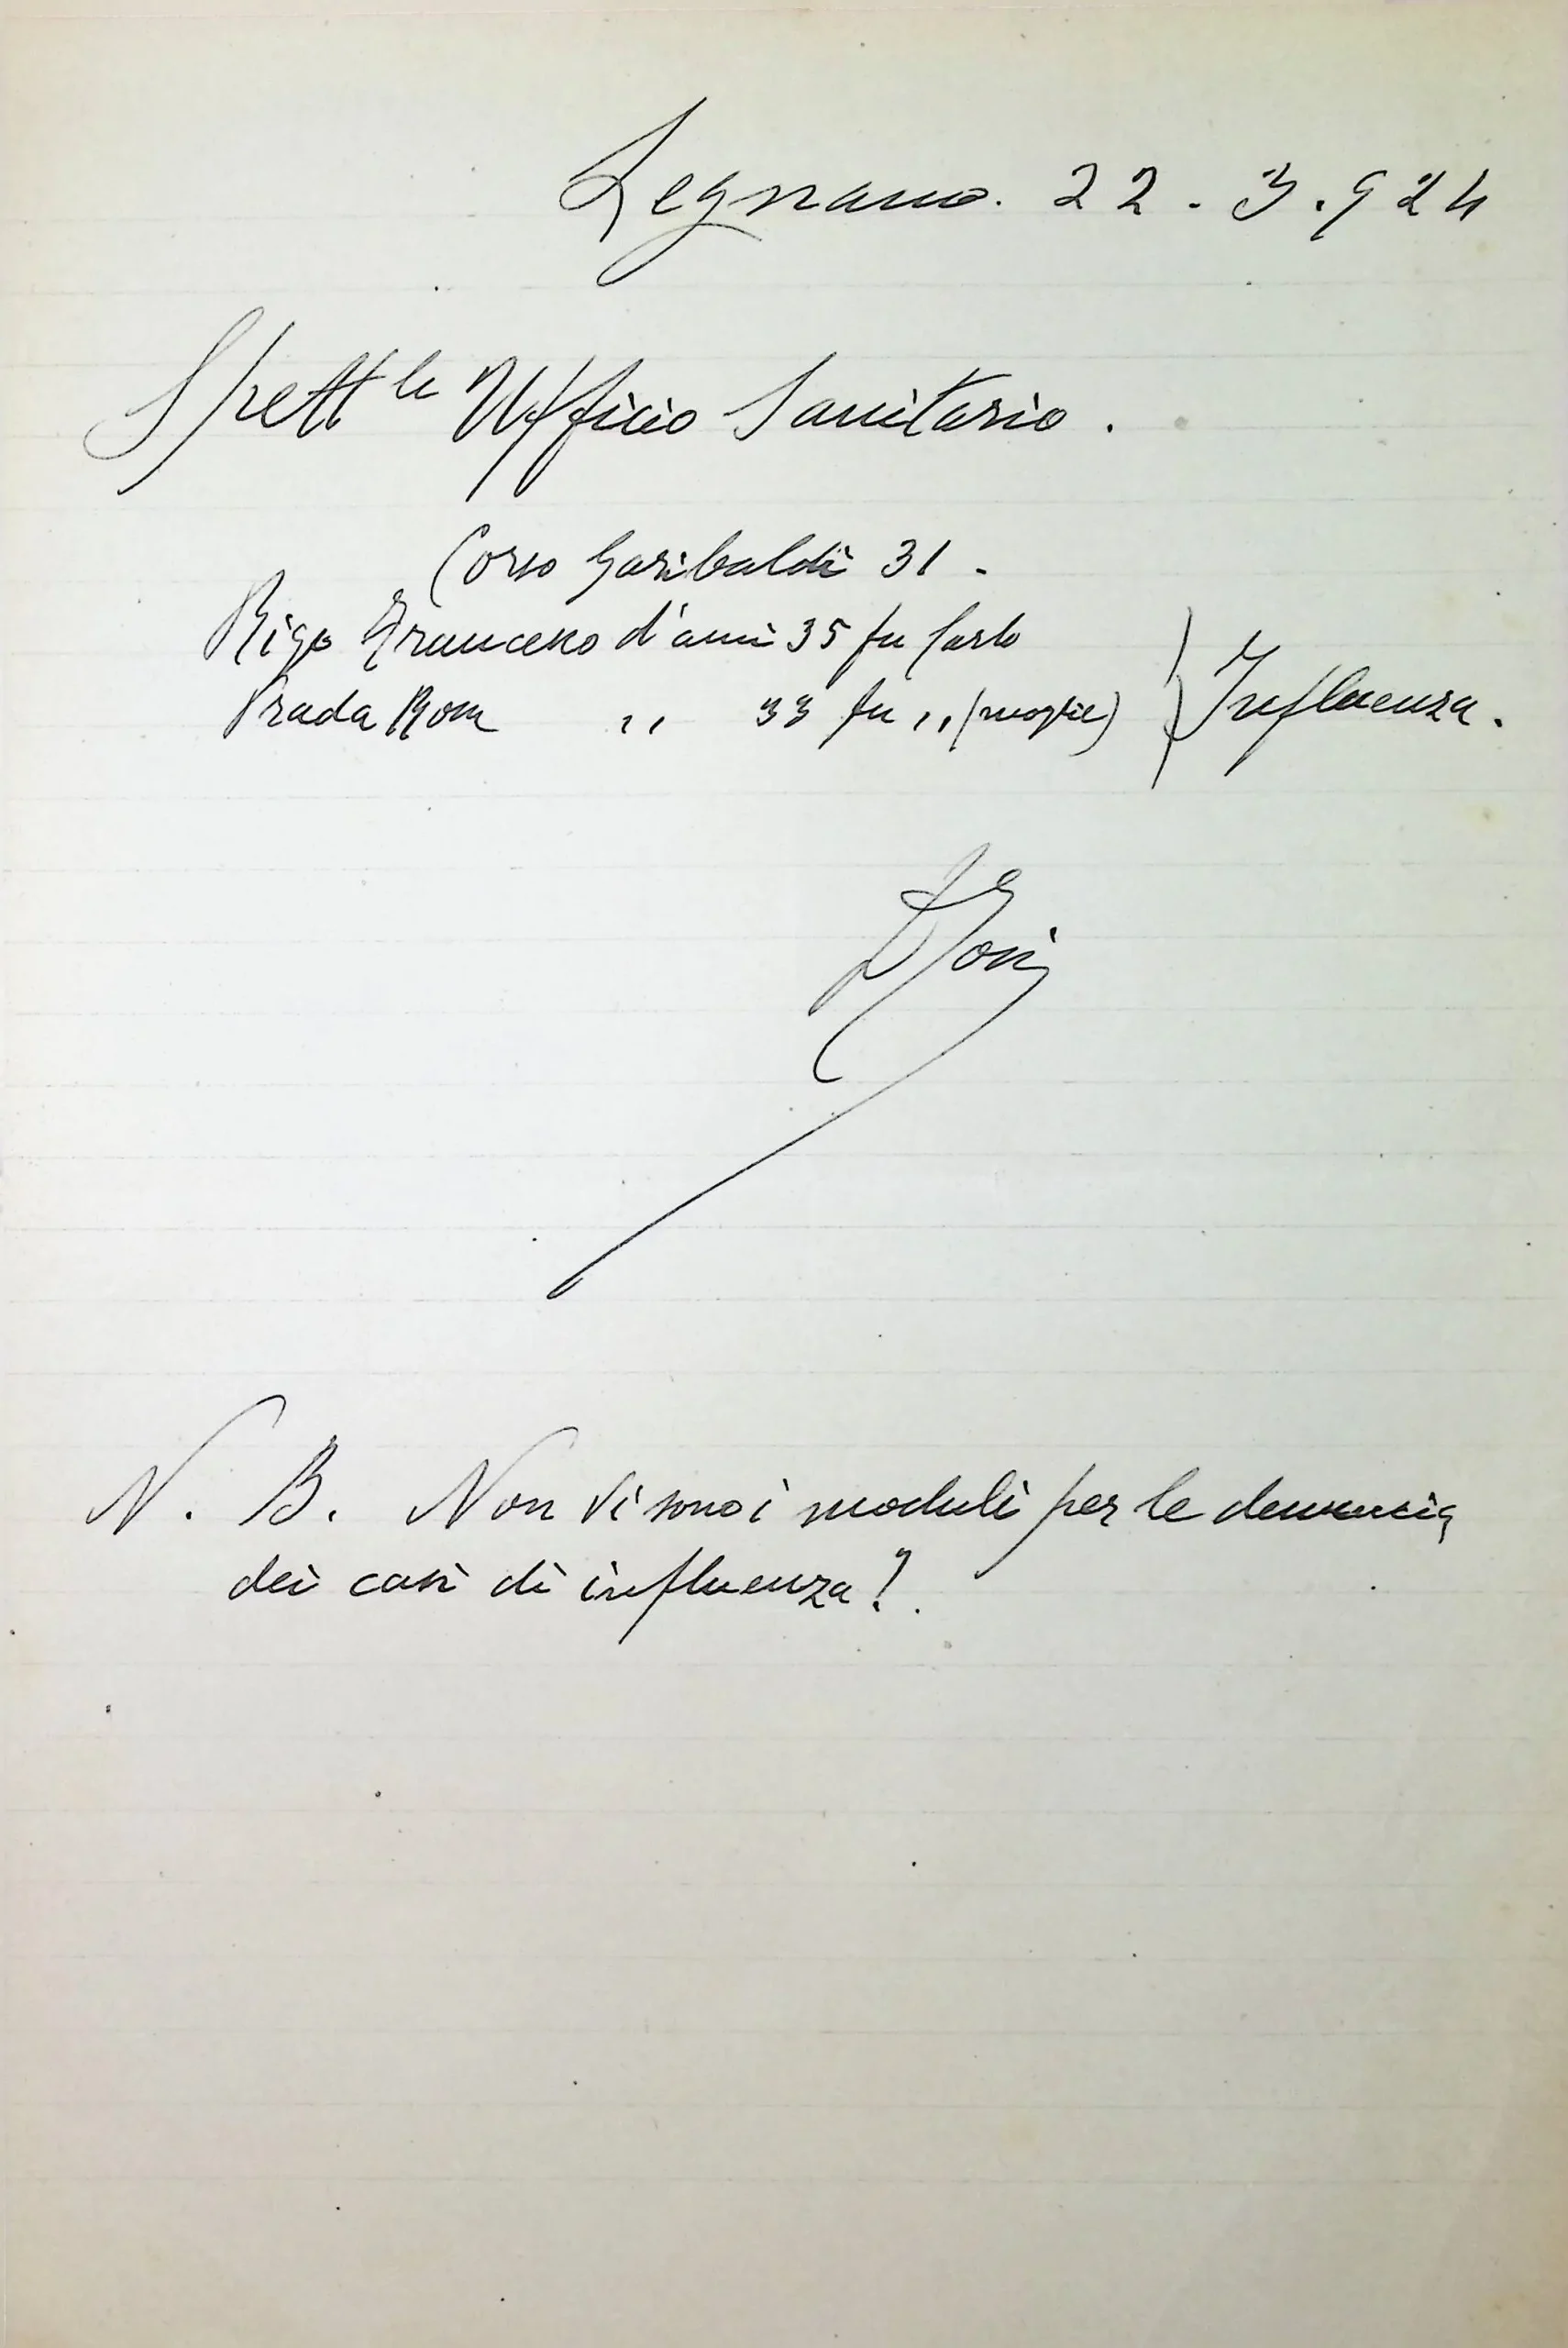 Legnano. 22.3.924
Spett.le Ufficio Sanitario.
Corso Garibaldi 31.
Rigo Francesco d'anni 35 fu Carlo
Prada Rosa ,, 33 fu ,, (moglie) } Influenza.
N. B. Non vi sono i moduli per le denuncie
dei casi di influenza?.